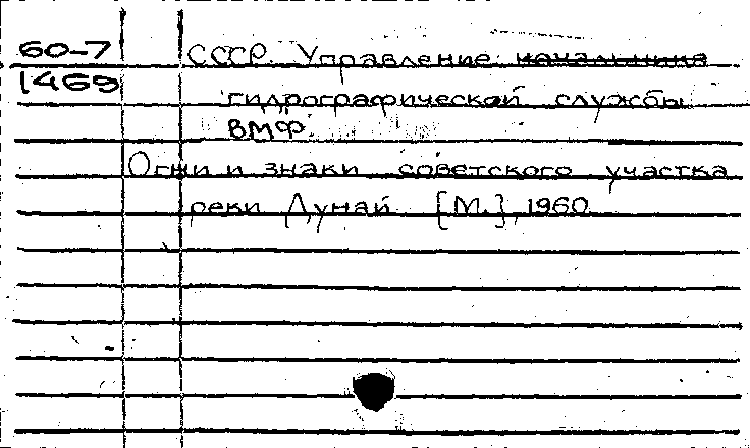 60-7
1469
СССР. Управление начальника
гидрографической службы
ВМФ.
Огни и знаки советского участка
реки Дунай [М.], 1960